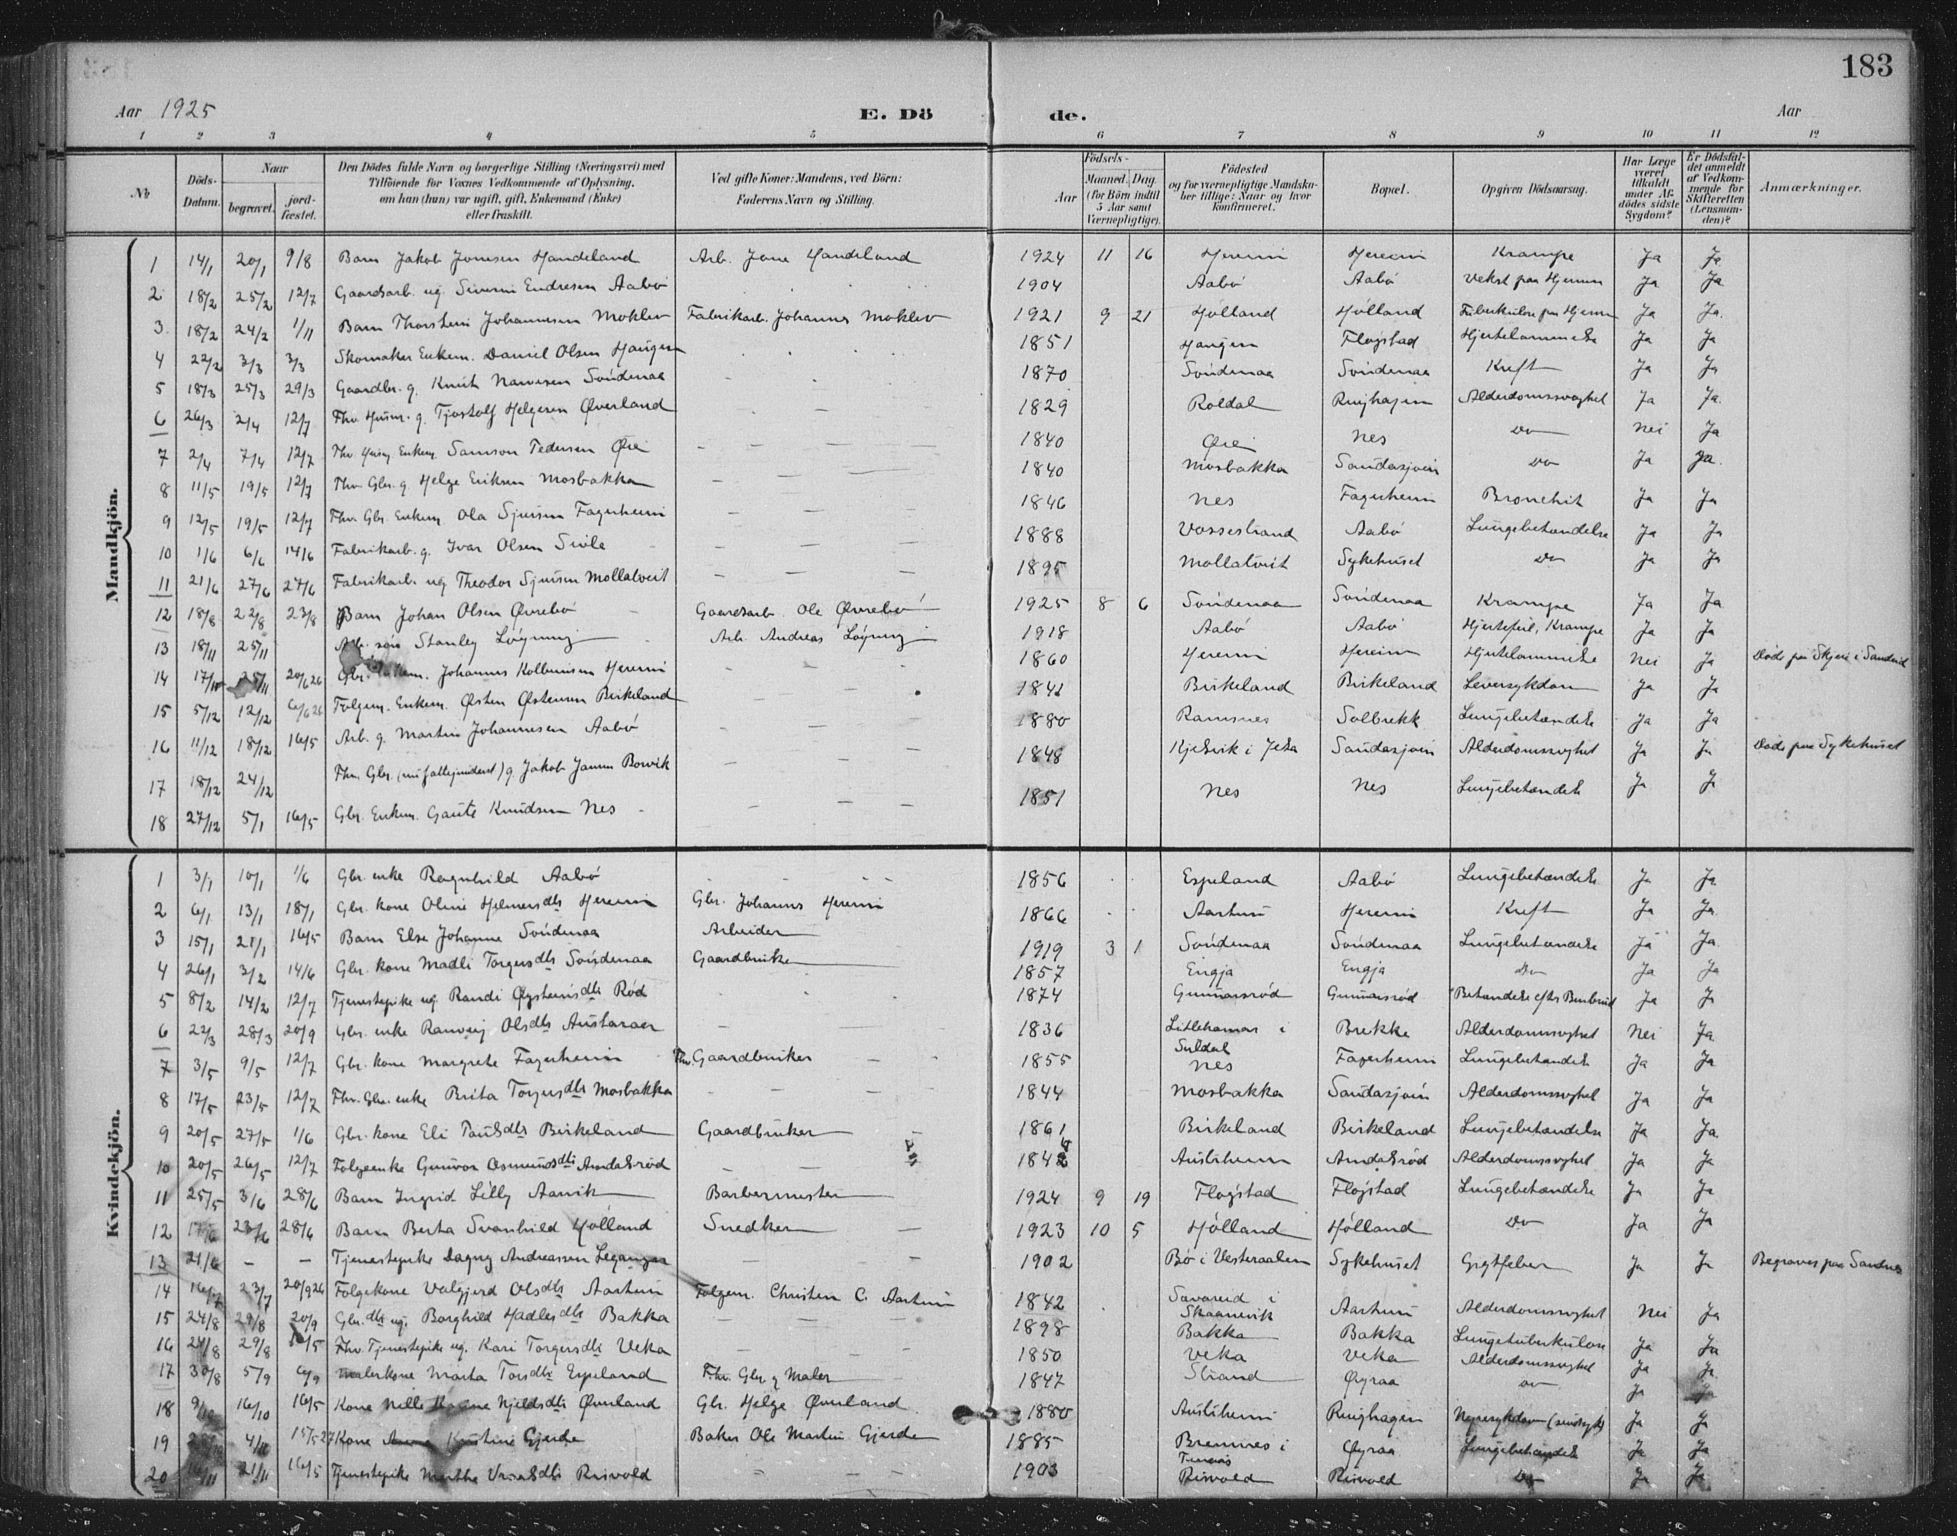 183
Aar 1925 E. Dö de. Aar
1 2 3 4 5 6 7 8 9 10 11 12
No. Döds-Datum. Naar begravet. jord-fæstet. Den Dödes fulde Navn og borgerlige Stilling (Næringsvei) med Tilföiende for Voxnes Vedkommende af Oplysning, om han (hun) var ugift, gift, Enkemand (Enke) eller fraskilt. Ved gifte Koner: Mandens, ved Börn: Faderens Navn og Stilling. Födsels- Aar Maaned. Dag. (for Börn indtil 5 Aar samt Værnepligtige). Födested og for værnepligtige Mandskaber tillige: Naar og hvor konfirmeret. Bopæl. Opgiven Dödsaarsag. Har Læge været tilkaldt under Afdödes sidste Sygdom? Er Dödsfaldet anmeldt af Vedkommende for Skifteretten (Lensmanden)? Anmærkninger.
Mandkjön.
1 14/1 20/1 9/8 Barn Jakob Jonesen Handeland Arb. Jone Handeland 1924 11 16 Hereim Hereim Krampe Ja Ja
2 18/2 25/2 12/7 Gaardsarb. ug. Siverin Endresen Aabø 1904 Aabø Aabø Vekst paa Hjernen Ja Ja
3 18/2 24/2 1/11 Barn Thorstein Johannesen Moklev Fabrikarb. Johannes Moklev 1921 9 21 Hølland Hølland Tuberkulose paa Hjernen Ja Ja
4 22/2 3/3 3/3 Skomaker Enkem. Daniel Olsen Haugen 1851 Haugen Fløgstad Hjertelammelse Ja Ja
5 18/3 25/3 29/3 Gaardbr. g. Knut Narvesen Søndenaa 1870 Søndenaa Søndenaa Kreft Ja Ja
6 26/3 2/4 12/7 Fhv. Husm. g. Tjostolf Helgesen Øverland 1829 Roldal Ringhagen Alderdomssvaghet Ja Ja
7 2/4 7/4 12/7 Fhv. Husm. Enkem. Samson Pedersen Øie 1840 Øie Nes Do Nei Ja
8 11/5 19/5 12/7 Fhv. Gbr. g. Helge Eriksen Mosbakka 1840 Mosbakka Saudasjøin Do Ja Ja
9 12/5 19/5 12/7 Fhv. Gbr. Enkem. Ola Sjursen Fagerheim 1846 Nes Fagerheim Bronchit Ja Ja
10 1/6 6/6 14/6 Fabrikarb. g. Ivar Olsen Sivle 1888 Vossestrand Aabø Lungebetændelse Ja Ja
11 21/6 27/6 27/6 Fabrikarb. ug. Theodor Sjursen Mollatveit 1895 Mollatveit Sykehuset Do Ja Ja
12 18/8 22/8 23/8 Barn Johan Olsen Øvrebø Gaardsarb. Ole Øvrebø 1925 8 6 Søndenaa Søndenaa Krampe Ja Ja
13 18/11 25/11 Arb. søn Stanley Løyning Arb. Andreas Løyning 1918 Aabø Aabø Hjertefeil, Krampe Ja Ja
14 17/11 25/11 20/6 26 Gbr. Enkem. Johannes Kolbeinsen Hereim 1860 Hereim Hereim Hjertelammelse Nei Ja Død paa Skjeie i Sandeid
15 5/12 12/12 6/6 26 Følgem. Enkem. Østen Østensen Birkeland 1841 Birkeland Birkeland Leversykdom Ja Ja
16 11/12 18/12 16/5 Arb. g. Martin Johannesen Aabø 1880 Ramsnes Solbrekk Lungebetændelse Ja Ja Død paa Sykehuset
17 18/12 24/12 Fhv. Gbr. (nu fattigunderst.) g. Jakob Jansen Borvik 1848 Kjelvik i Jelsa Saudasjøin Alderdomssvaghet Ja Ja
18 27/12 5/1 16/5 Gbr. Enkem. Gaute Knudsen Nes 1851 Nes Nes Lungebetændelse Ja Ja
Kvindekjön.
1 3/1 10/1 1/6 Gbr. enke Ragnhild Aabø 1856 Espeland Aabø Lungebetændelse Ja Ja
2 6/1 13/1 18/1 Gbr. kone Oline Helmersdtr Hereim Gbr. Johannes Hereim 1866 Aarthun Hereim Kreft Ja Ja
3 15/1 21/1 16/5 Barn Else Johanne Søndenaa Arbeider 1919 3 1 Søndenaa Søndenaa Lungebetændelse Ja Ja
4 26/1 3/2 14/6 Gbr. kone Madli Torgersdtr Søndenaa Gaardbruker 1857 Engja Engja Do Ja Ja
5 8/2 14/2 12/7 Tjenestepike ug. Randi Øysteinsdtr Rød 1874 Gunnarsrød Gunnarsrød Betændelse efter Benbrud Ja Ja
6 22/3 28/3 20/9 Gbr. enke Ranveig Olsdtr Austaraaen 1836 Litlehamar i Suldal Brekke Alderdomssvaghet Nei Ja
7 3/5 9/5 12/7 Gbr. kone Margrete Fagerheim Fhv. Gaardbruker 1855 Nes Fagerheim Lungebetændelse Ja Ja
8 17/5 23/5 12/7 Fhv. Gbr. enke Brita Torgersdtr Mosbakka 1844 Mosbakka Saudasjøin Alderdomssvaghet Ja Ja
9 20/5 27/5 1/6 Gbr. kone Eli Paulsdtr Birkeland Gaardbruker 1861 Birkeland Birkeland Lungebetændelse Ja Ja
10 20/5 26/5 12/7 Følgeenke Gunvor Osmundsdtr Amdalsrød 1842 Austrheim Amdalsrød Alderdomssvaghet Ja Ja
11 25/5 3/6 28/6 Barn Ingrid Lilly Aanvik Barbermester 1924 9 19 Fløgstad Fløgstad Lungebetændelse Ja Ja
12 17/6 23/6 28/6 Barn Berta Svanhild Hølland Snedker 1923 10 5 Hølland Hølland Do Ja Ja
13 21/6 – – Tjenestepike Dagny Andreassen Leganger 1902 Bø i Vesteraalen Sykehuset Gigtfeber Ja Ja Begraves paa Sandnes
14 16/7 23/7 20/9 26 Følgekone Valgjerd Olsdtr Aarthun Følgem. Christen C. Aarthun 1842 Savareid i Skaanevik Aarthun Alderdomssvaghet Nei Ja
15 24/8 29/8 20/9 Gbr. dtr ug. Borghild Hadlesdtr Bakka 1898 Bakka Bakka Lungetuberkulose Ja Ja
16 24/8 29/8 16/5 Fhv. Tjenestepike ug. Kari Torgersdtr Veka 1850 Veka Veka Alderdomssvaghet Ja Ja
17 30/8 5/9 6/9 Malerkone Marta Torsdtr Espeland Fhv. Gbr. g Maler 1847 Strand Øyraa Do Ja
18 9/10 16/10 16/5 Kone Nille Kjeldsdtr Øverland Gbr. Helge Øverland 1880 Austrheim Ringhagen Nyresykdom (sindssyk) Ja Ja
19 4/11 15/5 27 Kone Kristine Gjerde Baker Ole Martin Gjerde 1885 Bremnes i Øyraa Lungebetændelse Ja Ja
20 21/11 16/5 Tjenestepike Marthe Risvold 1903 Risvold Risvold Do Ja Ja